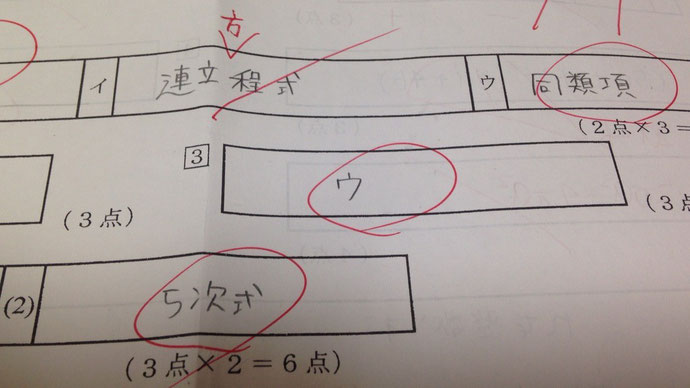 方
イ 連立程式 ウ 同類項
(2点×3=
3 ウ
(3点) (3点
(2) 5次式
(3点×2=6点)